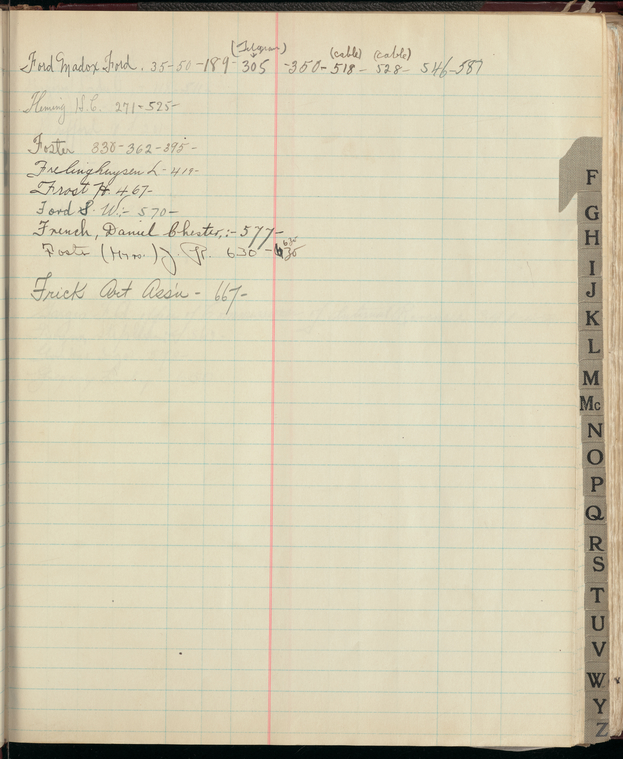 (Telegram) (cable) (cable)
Ford Madox Ford. 35-50-189-305-350-518-528-546-587
Fleming H.C. 271-525-
Foster 330-362-395-
Frelinghuysen L-419-
Frost H. 467-
Ford S. W:- 570-
French, Daniel Chester,:-577-
Foster (Mrs.) J. 630-
635
Frick Art Ass'n - 667-
F
G
H
I
J
K
L
M
Mc
N
O
P
Q
R
S
T
U
V
W
Y
Z